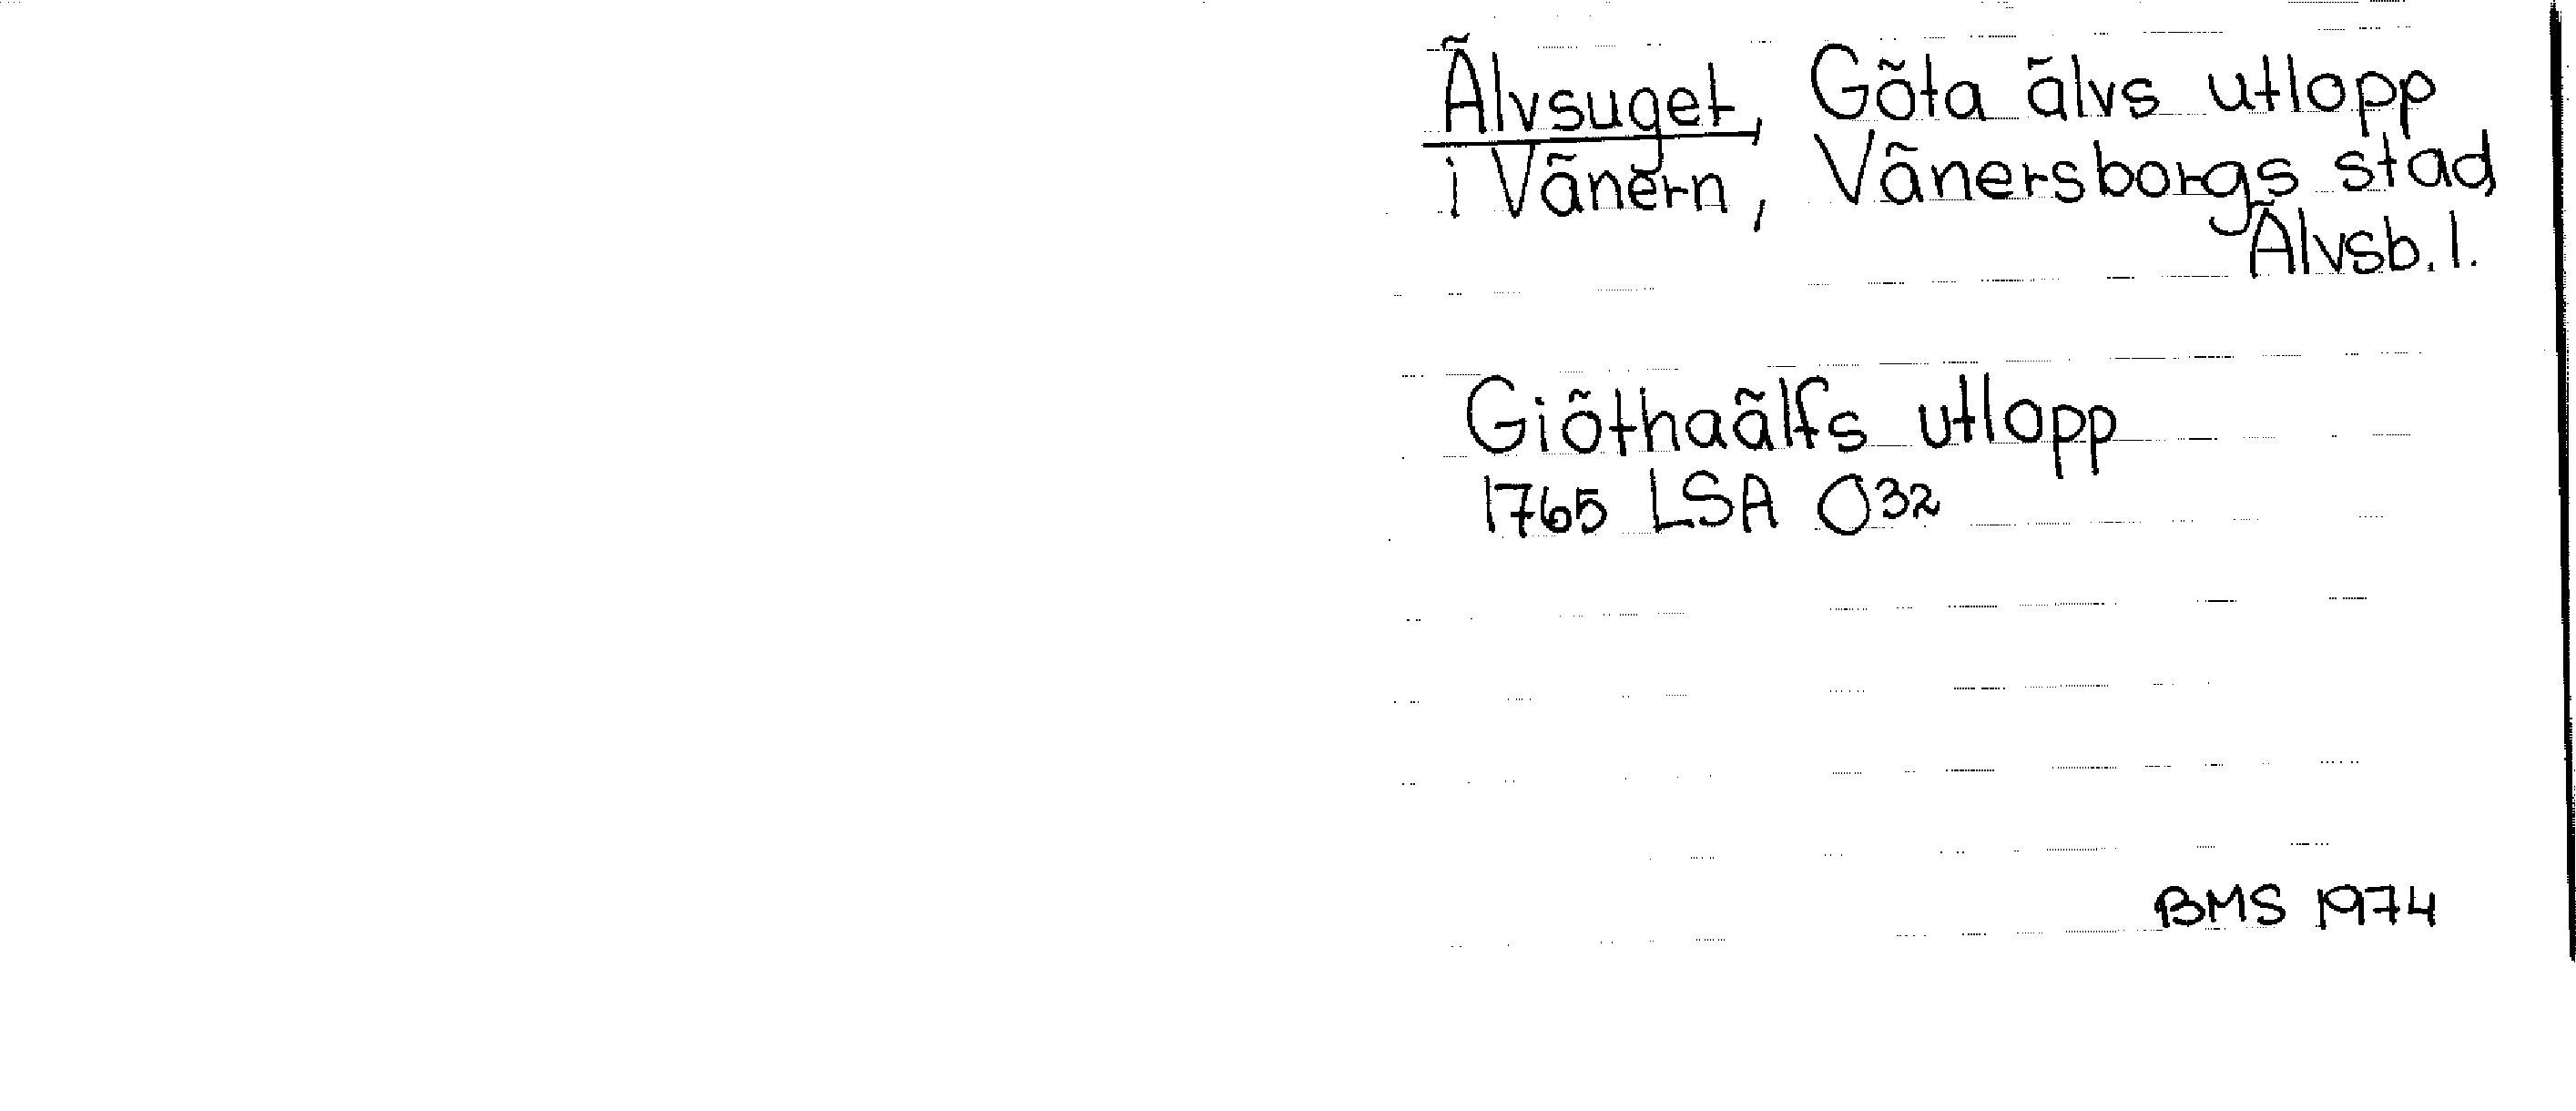 Älvsuget, Göta älvs utlopp
i Vänern, Vänersborgs stad
Älvsb. l.
Giöthaälfs utlopp
1765 LSA O32
BMS 1974